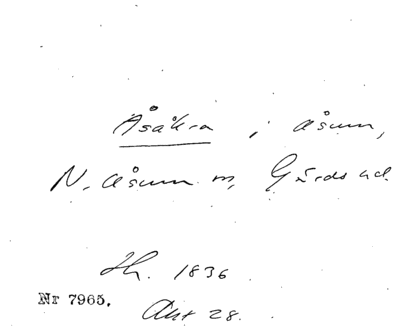 Åsåkra i Åsum,
N. Åsum sn, Gärds hd.
Sk. 1836
Nr 7965.
Akt 28.